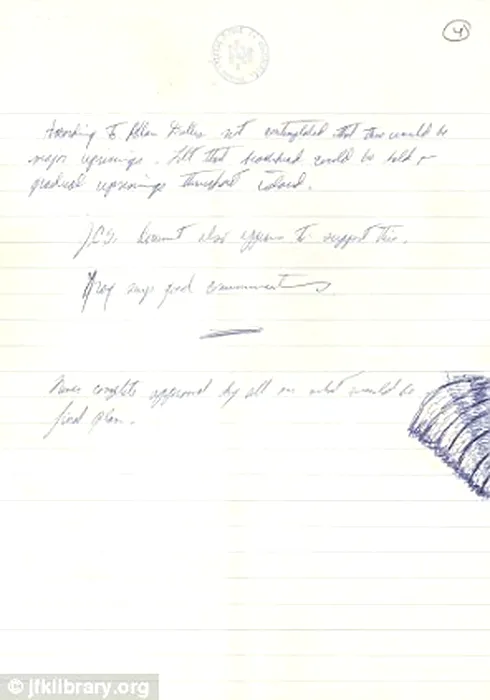 4
According to Allen Dulles not contemplated that there would be
major uprisings. Felt that beachhead could be held &
gradual uprisings throughout island.
J.C.S. document also appears to support this.
says good communications
Never complete approval by all on what would be
final plan.
© jfklibrary.org